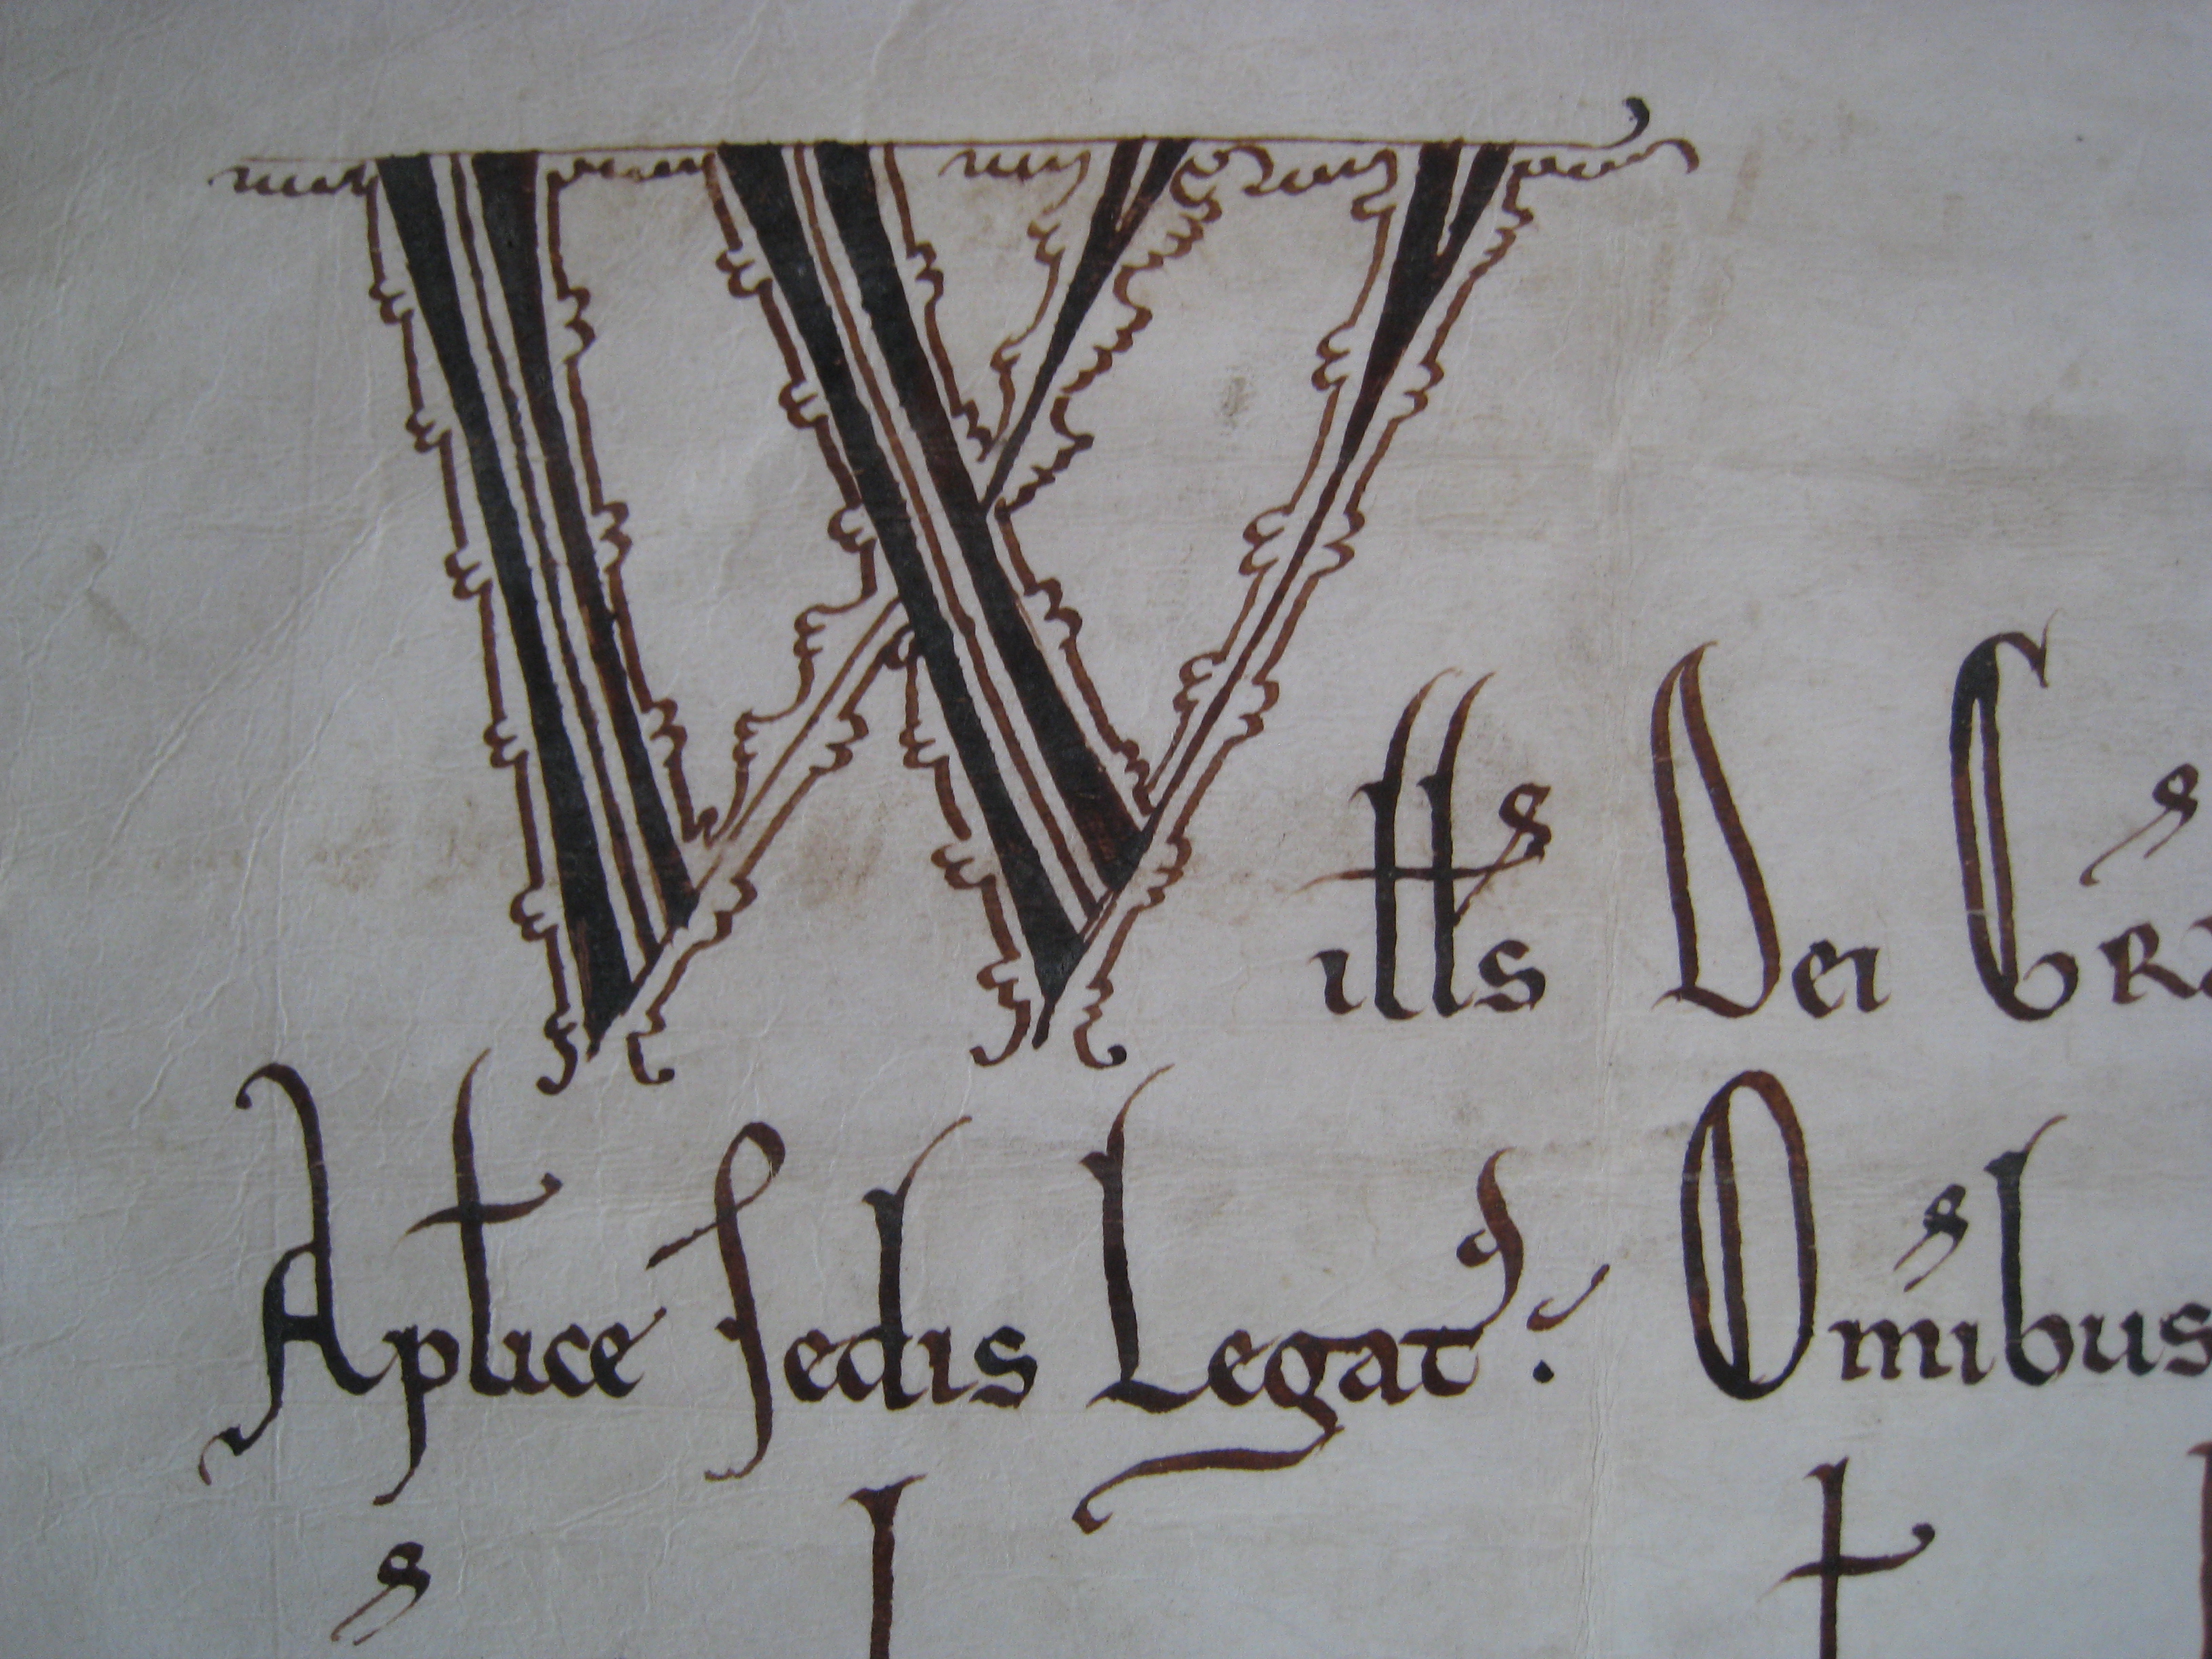 Wills Dei Gr
Aplice sedis Legat. Omibus